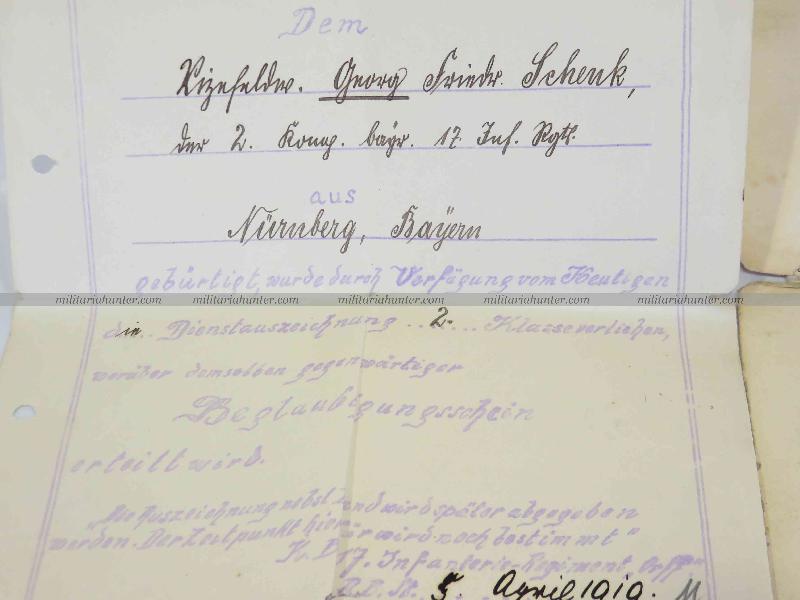 Dem
Vizefeldw. Georg Friedr. Schenk,
der 2. Komp. bayr. 17. Inf. Rgts.
aus
Nürnberg, Bayern
gebürtigt, wurde durch Verfügung vom Heutigen
militariahunter.com militariahunter.com militariahunter.com militariahunter.com militariahunter.com
die Dienstauszeichnung ..2.... Klasse verliehen,
worüber demselben gegenwärtiger
Beglaubigungsschein
erteilt wird.
„Die Auszeichnung nebst Band wird später abgegeben
werden. Der Zeitpunkt hierfür wird noch bestimmt"
K. B. 17. Infanterie-Regiment „Orff"
St. 5. April 1919.